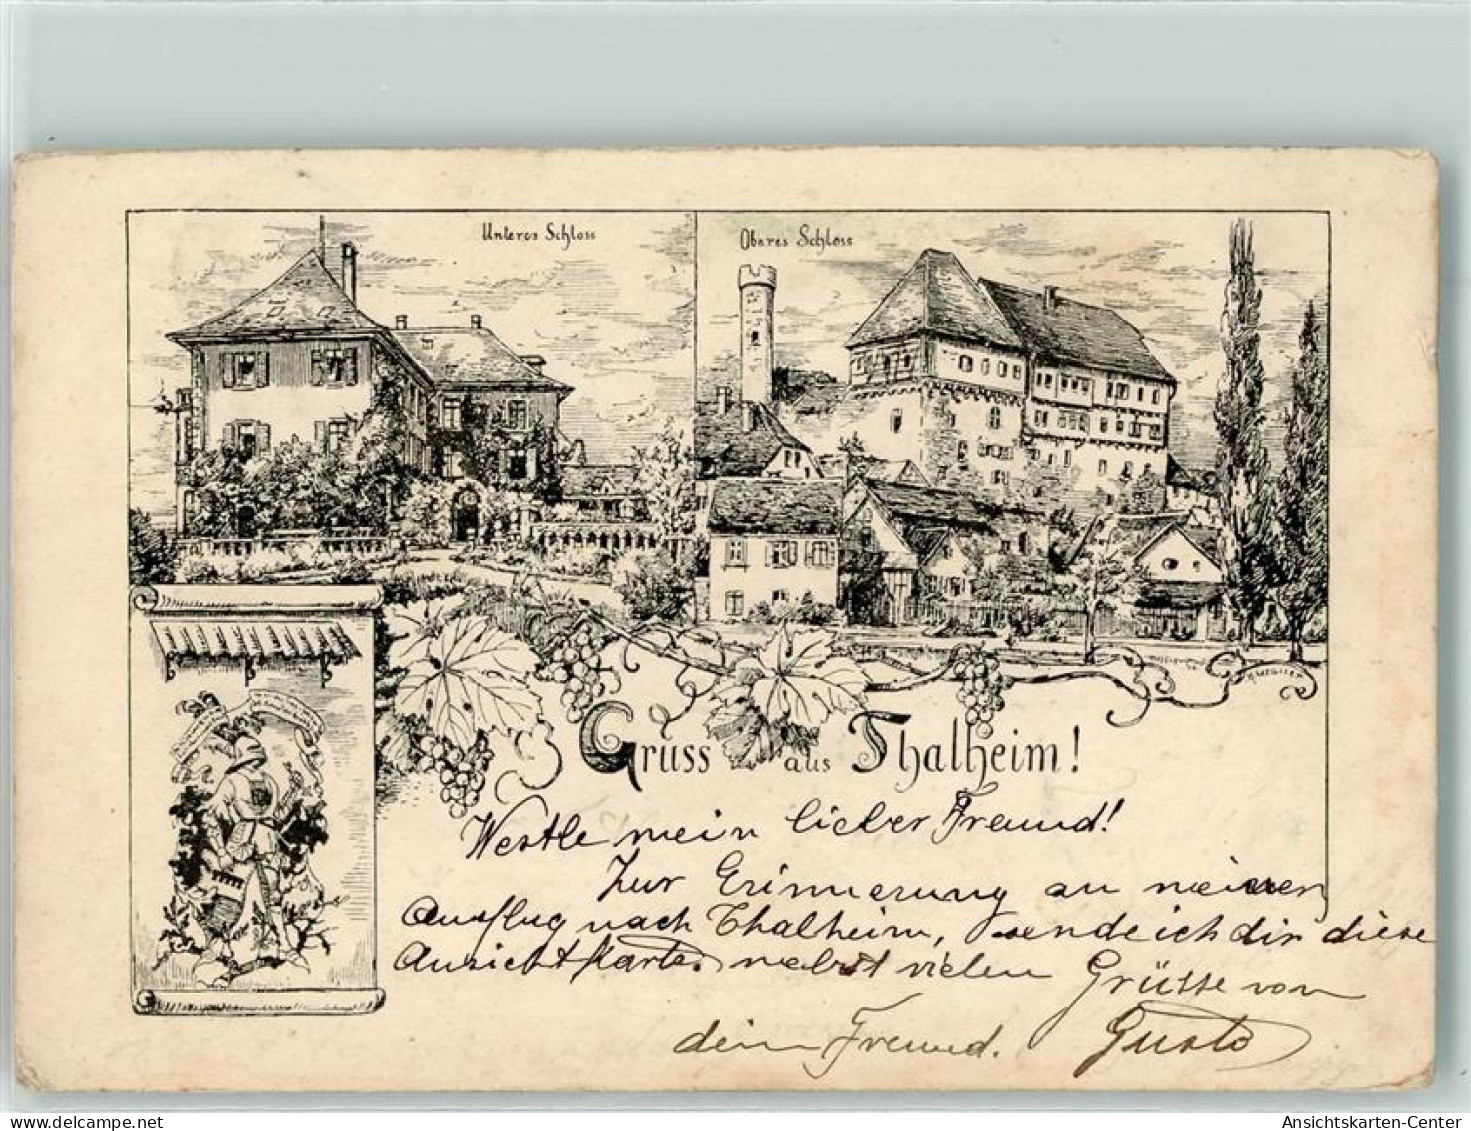 Unteres Schloss
Oberes Schloss
Gruss aus Thalheim!
mein lieber Freund!
Zur Erinnerung an meinen
Ausflug nach Thalheim, sende ich dir diese
Ansichtkarte. nebst vielen Grüsse von
dein Freund.
Ansichtskarten-Center